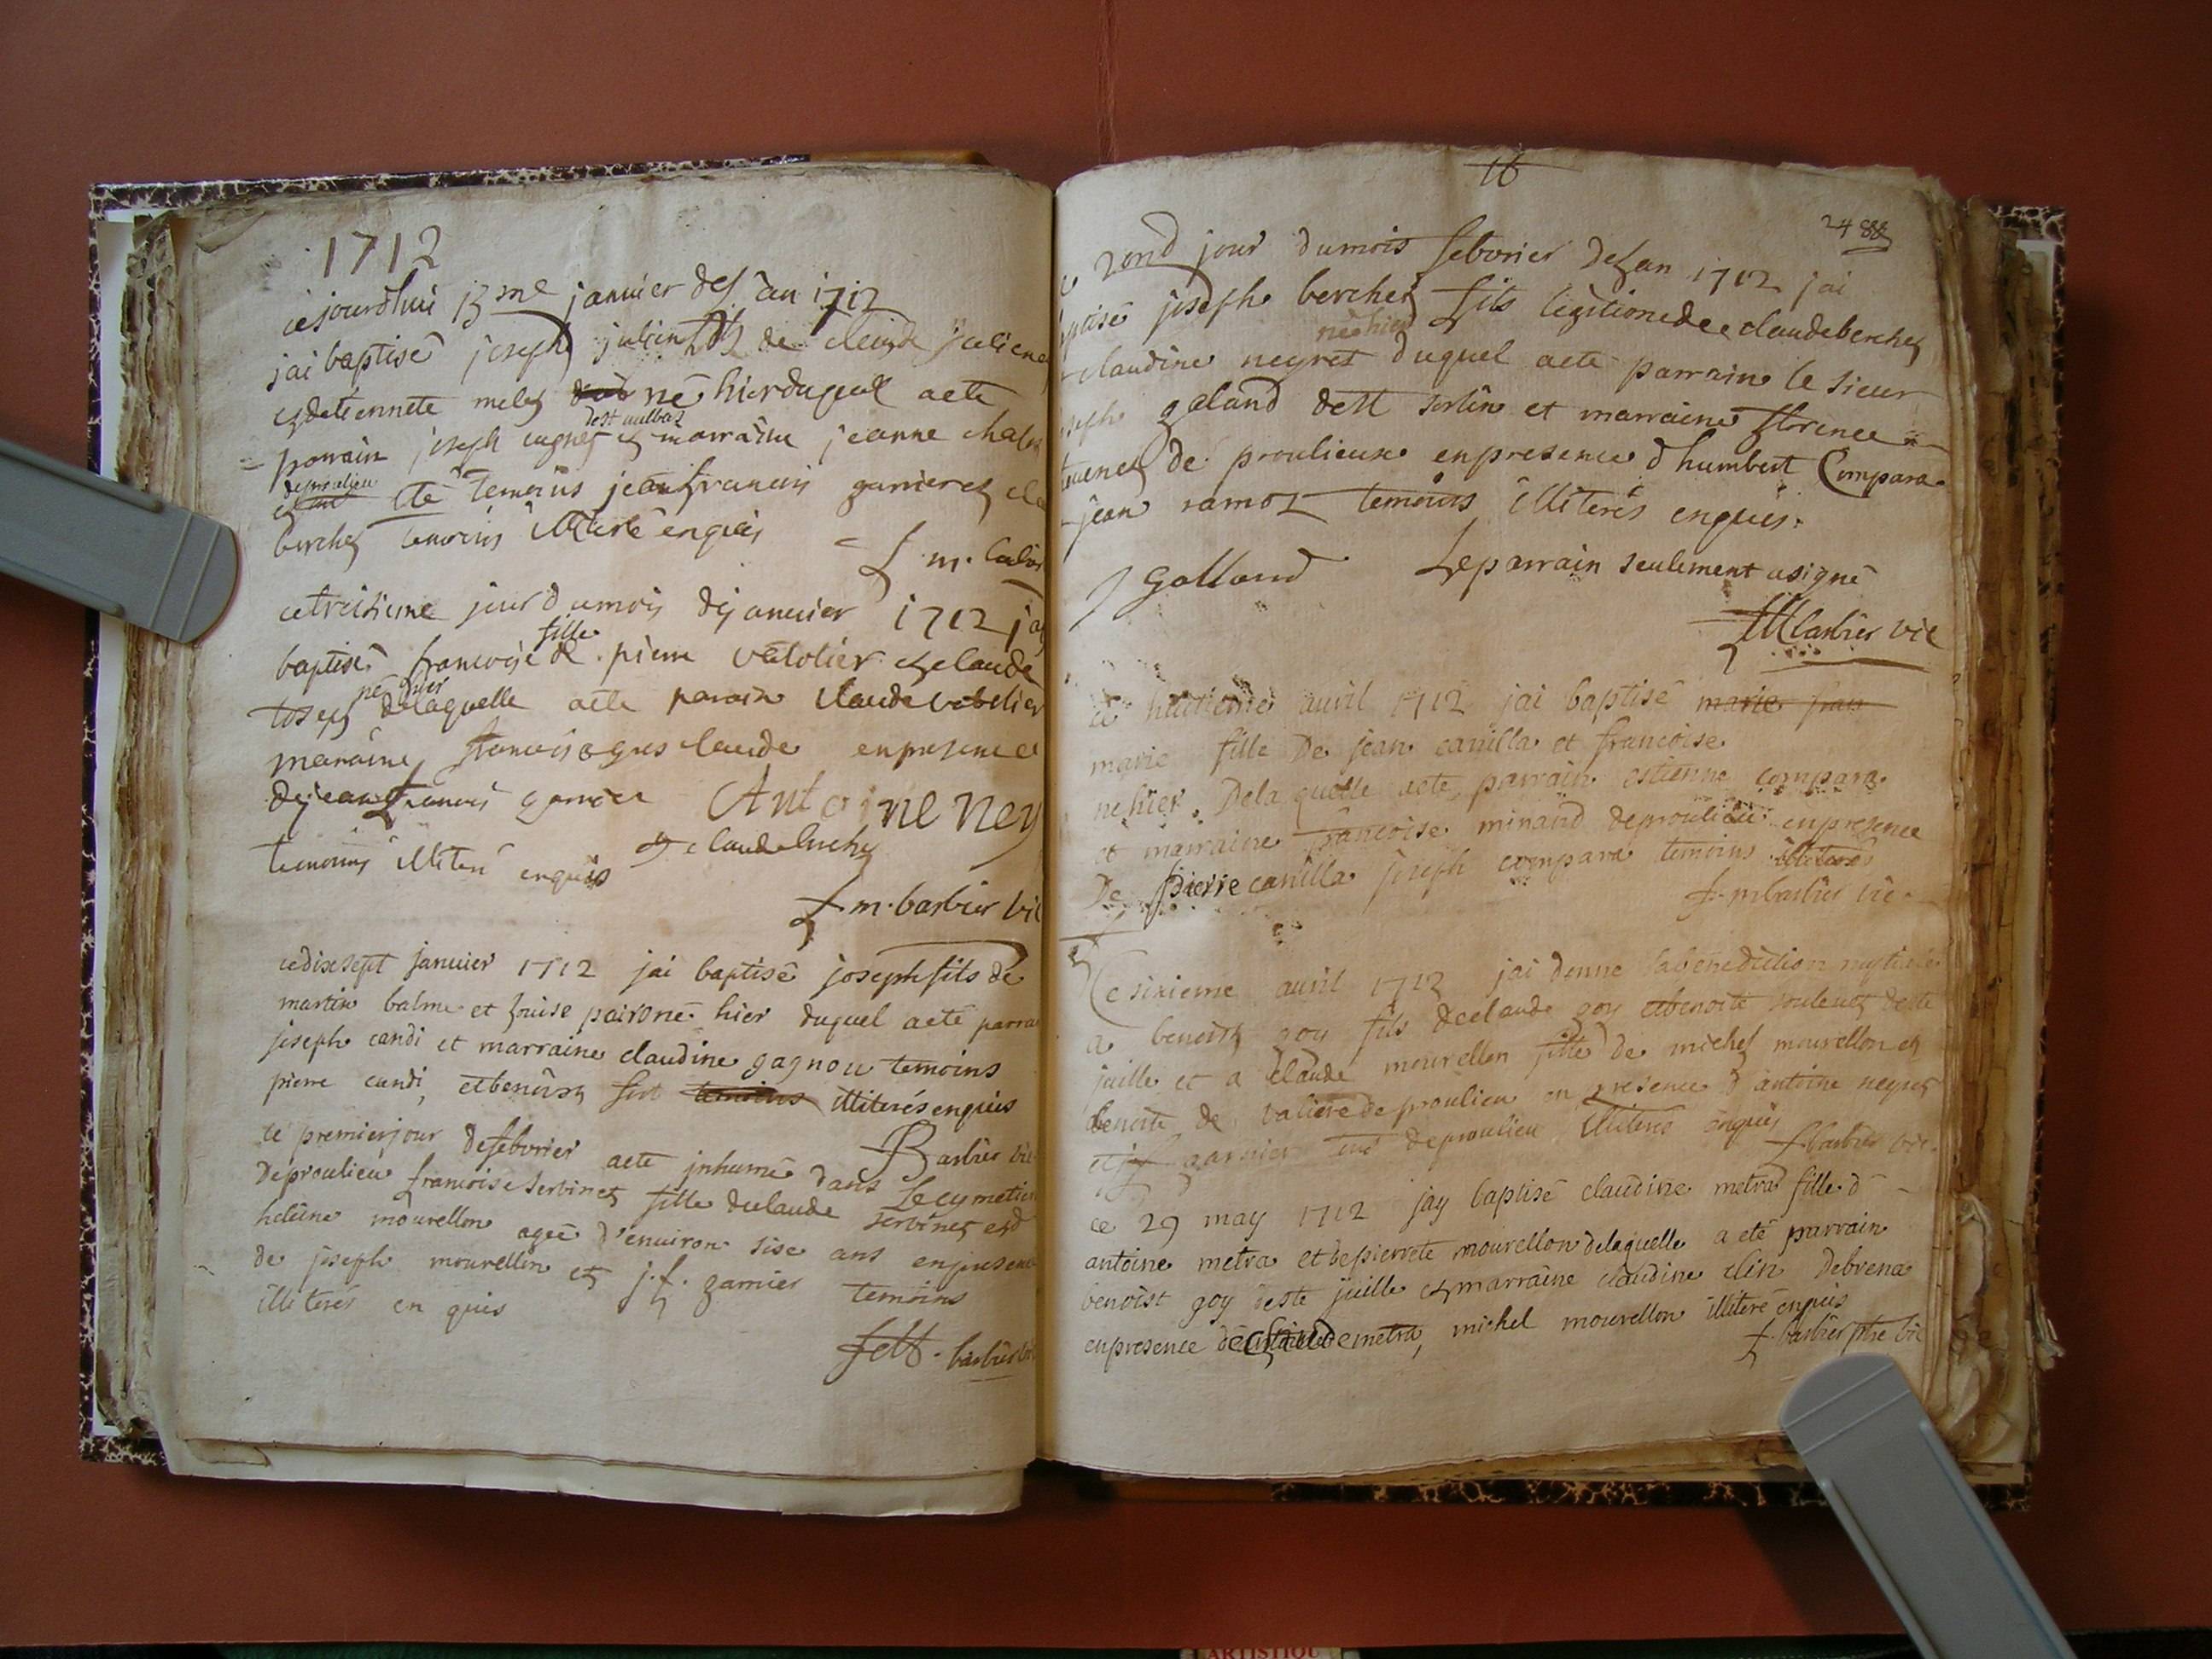 1712
cejourdhui 13me januier del an 1712
jai baptisé joseph julien fils de claude
etdetiennete né hierduquel aeté
dest uulbas
parrain joseph cugnet et marraine jeanne
deproulieu
temoins jeanfrancois garnier et
berchet temoins illiteré enquis
f. m.
cetreisieme jour dumois de januier 1712 jay
fille
baptisé francoise de pierre vetelier et claude
né hier
delaquelle aeté parain claude vetelier
maraine enpresence
dejean francois garnier Antoine ney
et claude berchet
temoins illiteré enquis
f m. barbier vic
cedixsept januier 1712 jai baptisé joseph fils de
martin balme et louise né hier duquel aeté parra
joseph candi et marraine claudine gagnou temoins
pierre candi, et benoist temoins illiterés enquis
Barbier vic
ce premierjour defebvrier aeté inhumé dans le cymetier
deproulieu francoise serbinet fille declaude serbinet et d
heleine mourellon ageé d'enuiron sise ans enpresence
de joseph mourellon et j. f. garnier temoins
illiterés en quis
barbier vic
16
24 88
ce 2ond jour dumois febvrier delan 1712 jai
ptisé joseph berchet fils legitime de claudeberchet
né hier
claudine neyret duquel aeté parrain le sieur
oseph galand dest sorlin et marraine florence
de proulieux enpresence d humbert Compara
jean ramoz temoins illiterés enquis.
J Galland Leparrain seulement asigné
fM barbier vic
ce huitieme auril 1712 jai baptisé marie fran
marie fille De jean canilla et francoise
né hier. Dela quelle aeté parrain estienne compara
et marraine francoise minand deproulieu enpresence
De pierre canilla joseph compara temoins illiterés
f. m barbier vic.
Ce sixieme auril 1712 jai donné la benediction nuptiale
a benoist goy fils declaude goy etbenoite de ste
juille et a claude mourellon fille de michel mourellon et
benoite de valiere de proulieu en presence d antoine neyret
et jf garnier deproulieu illiteres enquis
f barbier vic.
ce 29 may 1712 jay baptisé claudine metra fille d
antoine metra et depierrete mourellon delaquelle a eté parrain
benoist goy deste juille et marraine claudine elin debrena
enpresence declaude metra, michel mourellon illiteré enquis
f. barbier ptre vic
ARTISTIQU